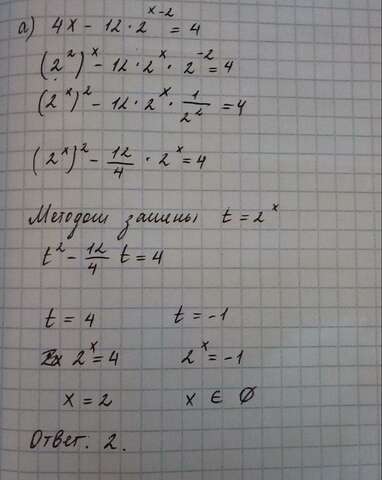 а) 4x - 12 · 2^(x-2) = 4
(2^2)^x - 12 · 2^x · 2^(-2) = 4
(2^x)^2 - 12 · 2^x · 1/2^2 = 4
(2^x)^2 - 12/4 · 2^x = 4
Методом замены t = 2^x
t^2 - 12/4 t = 4
t = 4 t = -1
2^x = 4 2^x = -1
x = 2 x ∈ ∅
Ответ: 2.